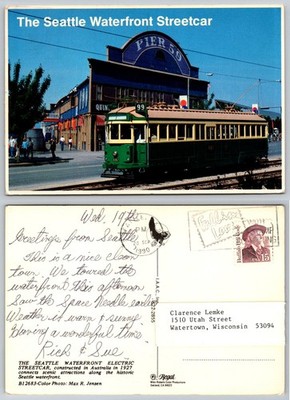 The Seattle Waterfront Streetcar
PIER 59
99
Wed. 19th
Greetings from Seattle
This is a nice clean
town. We toured the
waterfront this afternoon
Saw the Space Needle earlier
Weather is warm & sunny
Having a wonderful time
Rick & Sue
THE SEATTLE WATERFRONT ELECTRIC
STREETCAR, constructed in Australia in 1927
connects scenic attractions along the historic
Seattle waterfront.
B12683-Color Photo: Max R. Jensen
Clarence Lemke
1510 Utah Street
Watertown, Wisconsin 53094
Royal